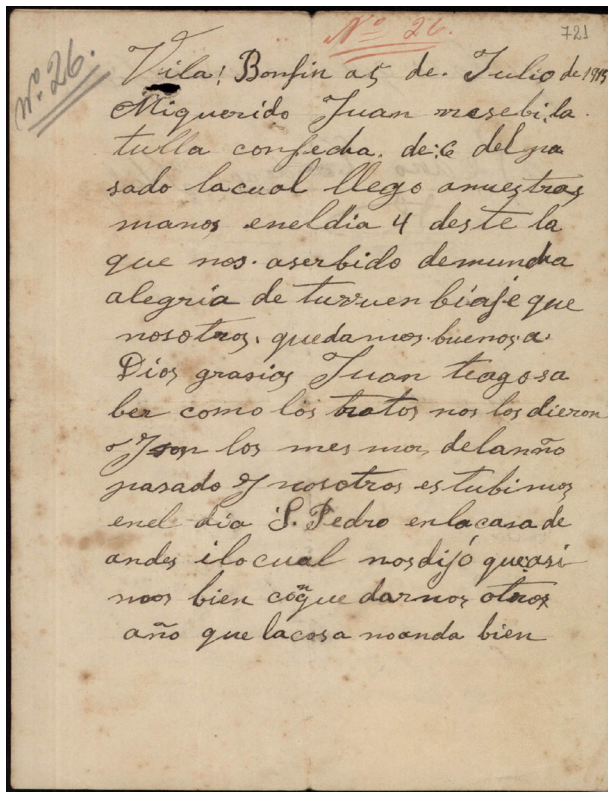 Nº 26.
721
nº. 26.
Vila! Bonfin a 5 de. Julio de 1915
Miquerido Juan rresebi. la.
tulla confecha. de: 6 del pa
sado lacual llego anuestras
manos eneldia 4 deste la
que nos. aserbido demuncha
alegria de turruen biaje que
nosotros. quedamos. buenos. a.
Dios grasias Juan teagosa
ber como los tratos nos los dieron
y son los mesmos delanño
pasado y nosotros estubimos
enel dia S. Pedro enlacasa de
andes ilocual nosdijó que:asi
mos bien con que darnos otros
año que lacosa noanda bien